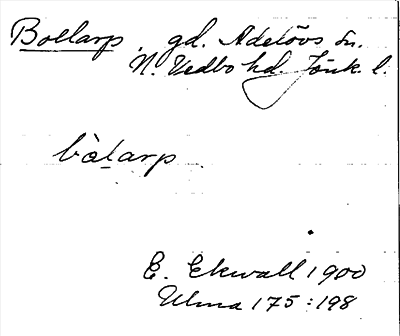 Bollarp, gd. Adelövs sn.
N. Vedbo hd. Jönk. l.
bòlarp
E. Ekwall 1900
Ulma 175:198